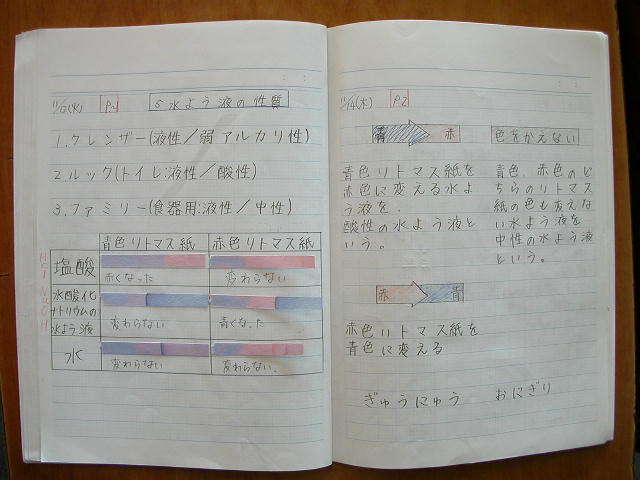 P.1
5 水よう液の性質
1.クレンザー(液性/弱アルカリ性)
2.ルック(トイレ:液性/酸性)
3.ファミリー(食器用:液性/中性)
青色リトマス紙 赤色リトマス紙
塩酸
赤くなった 変わらない
水酸化
ナトリウムの
水よう液
変わらない 青くなった
水
変わらない 変わらない
11/14(木) P.2
青 赤
青色リトマス紙を
赤色に変える水よ
う液を、
酸性の水よう液と
いう。
赤 青
赤色リトマス紙を
青色に変える
ぎゅうにゅう
色をかえない
青色、赤色のど
ちらのリトマス
紙の色も変えな
い水よう液を
中性の水よう液
という。
おにぎり